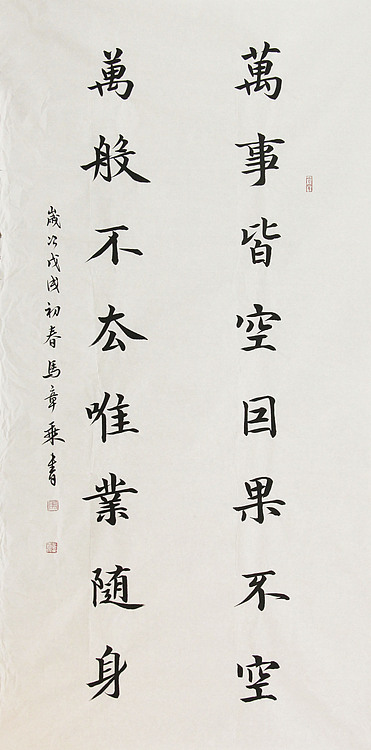 萬事皆空因果不空
萬般不去唯業随身
歲次戊戌初春馬章乘書